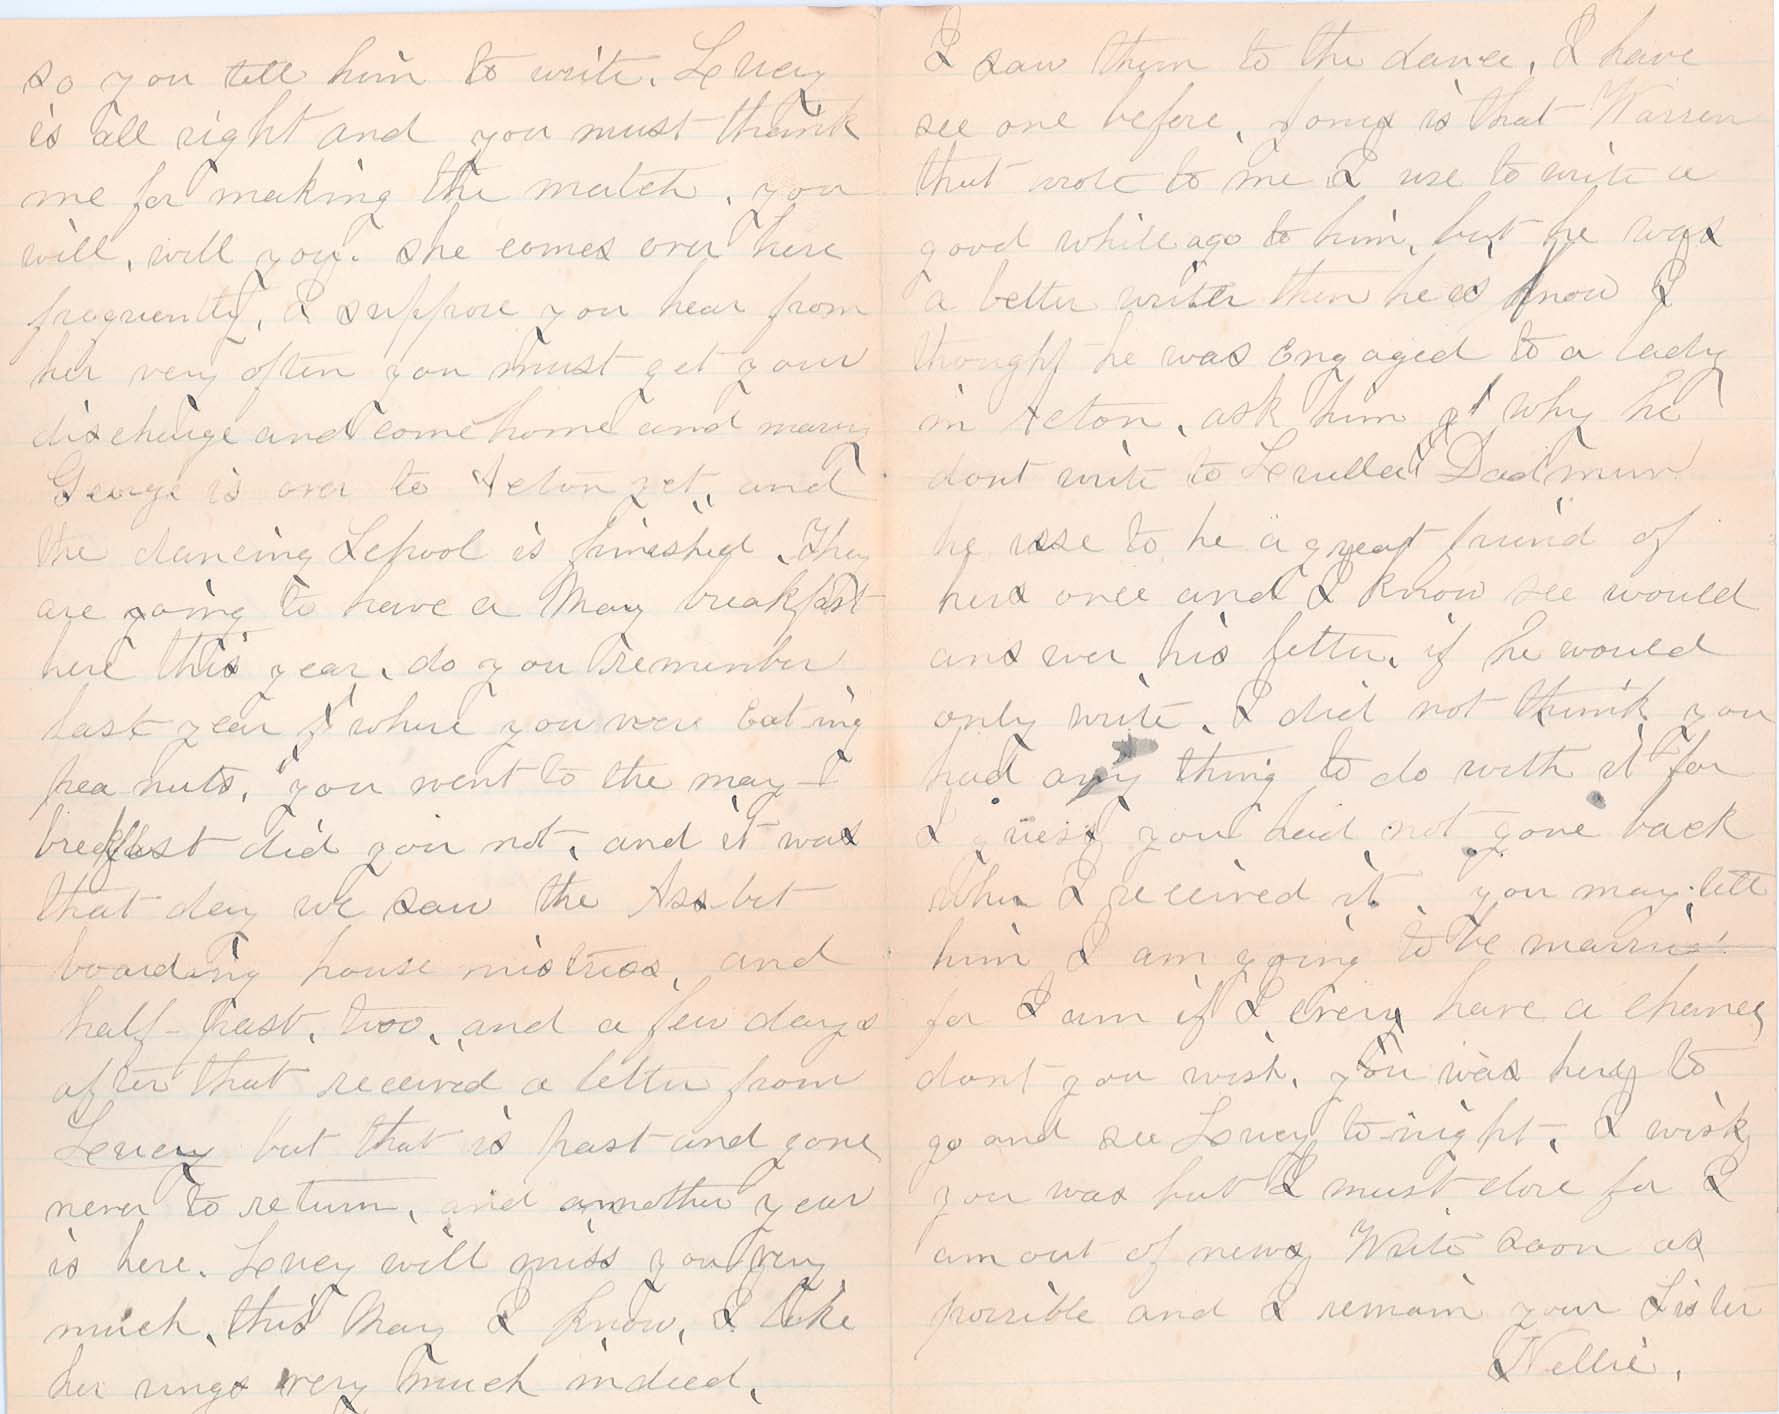 so you tell him to write. Lucey
is all right and you must thank
me for making the match, you
will, will you. she comes over here
frequently, I suppose you hear from
her very often you must get your
discharge and come home and marry
George is over to Acton yet, and
the dancing School is finished. They
are going to have a May breakfast
here this year, do you remember
last year where you were eating
pea nuts, you went to the may
breakfast did you not, and it was
that day we saw the Assbet
boarding house mistress, and
half-past, two, and a few days
after that received a letter from
Lucey but that is past and gone
never to return, and annother year
is here. Lucey will miss you very
much, this May I know, I like
her rings very much indeed,
I saw them to the dance, I have
see one before, is that Warren
that wrote to me I use to write a
good while ago to him, but he was
a better writer then he is know I
thought he was Engaged to a lady
in Acton, ask him why he
dont write to Luella Dadmun
he use to be a great friend of
hers once and I know see would
answer his letter, if he would
only write, I did not think you
had any thing to do with it for
I guess you had not gone back
when I received it. you may tell
him I am going to be married
for I am if I every have a chance
dont you wish, you was here to
go and see Lucey to-night, I wish
you was but I must close for I
am out of news Write soon as
possible and I remain your Sister
Nellie.